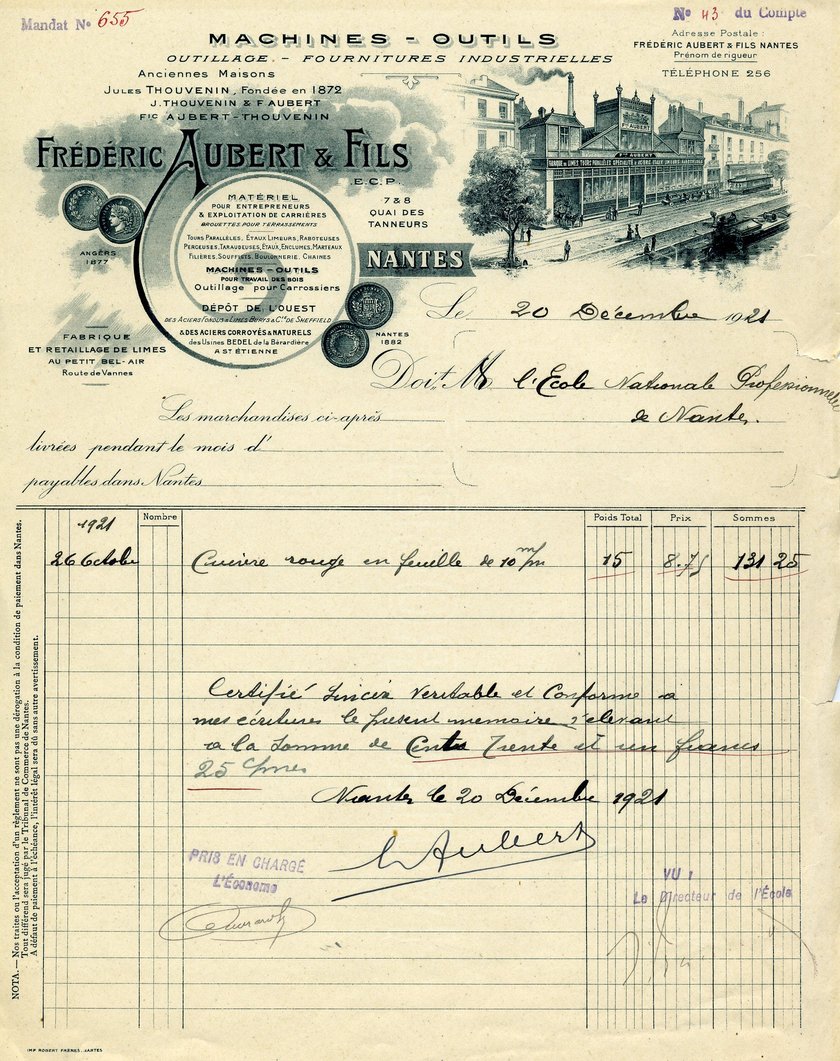 Mandat No 655
No 43 du Compte
MACHINES - OUTILS
OUTILLAGE. - FOURNITURES INDUSTRIELLES
Adresse Postale :
FRÉDÉRIC AUBERT & FILS NANTES
Prénom de rigueur
TÉLÉPHONE 256
Anciennes Maisons
JULES THOUVENIN, Fondée en 1872
J. THOUVENIN & F. AUBERT
FIC AUBERT-THOUVENIN
FRÉDÉRIC AUBERT & FILS
E.C.P.
7 & 8
QUAI DES
TANNEURS
NANTES
Fic AUBERT
FABRIQUE DE LIMES TOURS PARALLÈLES SPÉCIALITÉ
MATÉRIEL
POUR ENTREPRENEURS
& EXPLOITATION DE CARRIÈRES
BROUETTES POUR TERRASSEMENTS
TOURS PARALLÈLES, ETAUX LIMEURS, RABOTEUSES
PERCEUSES, TARAUDEUSES, ETAUX, ENCLUMES, MARTEAUX
FILIÈRES, SOUFFLETS, BOULONNERIE, CHAINES
MACHINES - OUTILS
POUR TRAVAIL DES BOIS
Outillage pour Carrossiers
DÉPÔT DE L'OUEST
DES ACIERS FONDUS & LIMES BURYS & Cie DE SHEFFIELD
& DES ACIERS CORROYÉS & NATURELS
des Usines BEDEL de la Bérardière
A ST ÉTIENNE
ANGERS
1877
NANTES
1882
FABRIQUE
ET RETAILLAGE DE LIMES
AU PETIT BEL-AIR
Route de Vannes
Le 20 Décembre 1921
Doit, M l'Ecole Nationale Professionnelle
de Nantes.
Les marchandises ci-après
livrées pendant le mois d'
payables dans Nantes
Nombre
Poids Total
Prix
Sommes
1921
26 Octobre Cuivre rouge en feuille de 10 m/m 15 8.75 131 25
Certifié Sincère Veritable et Conforme à
mes écritures le present memoire s'elevant
a la Somme de Cents Trente et un francs
25 cmes
Nantes le 20 Décembre 1921
Aubert
PRIS EN CHARGE
L'Économe
VU !
Le Directeur de l'École
NOTA. — Nos traites ou l'acceptation d'un règlement ne sont pas une dérogation à la condition de paiement dans Nantes.
Tout différend sera jugé par le Tribunal de Commerce de Nantes.
A défaut de paiement à l'échéance, l'intérêt légal sera dû sans autre avertissement.
IMP. ROBERT FRÈRES. NANTES